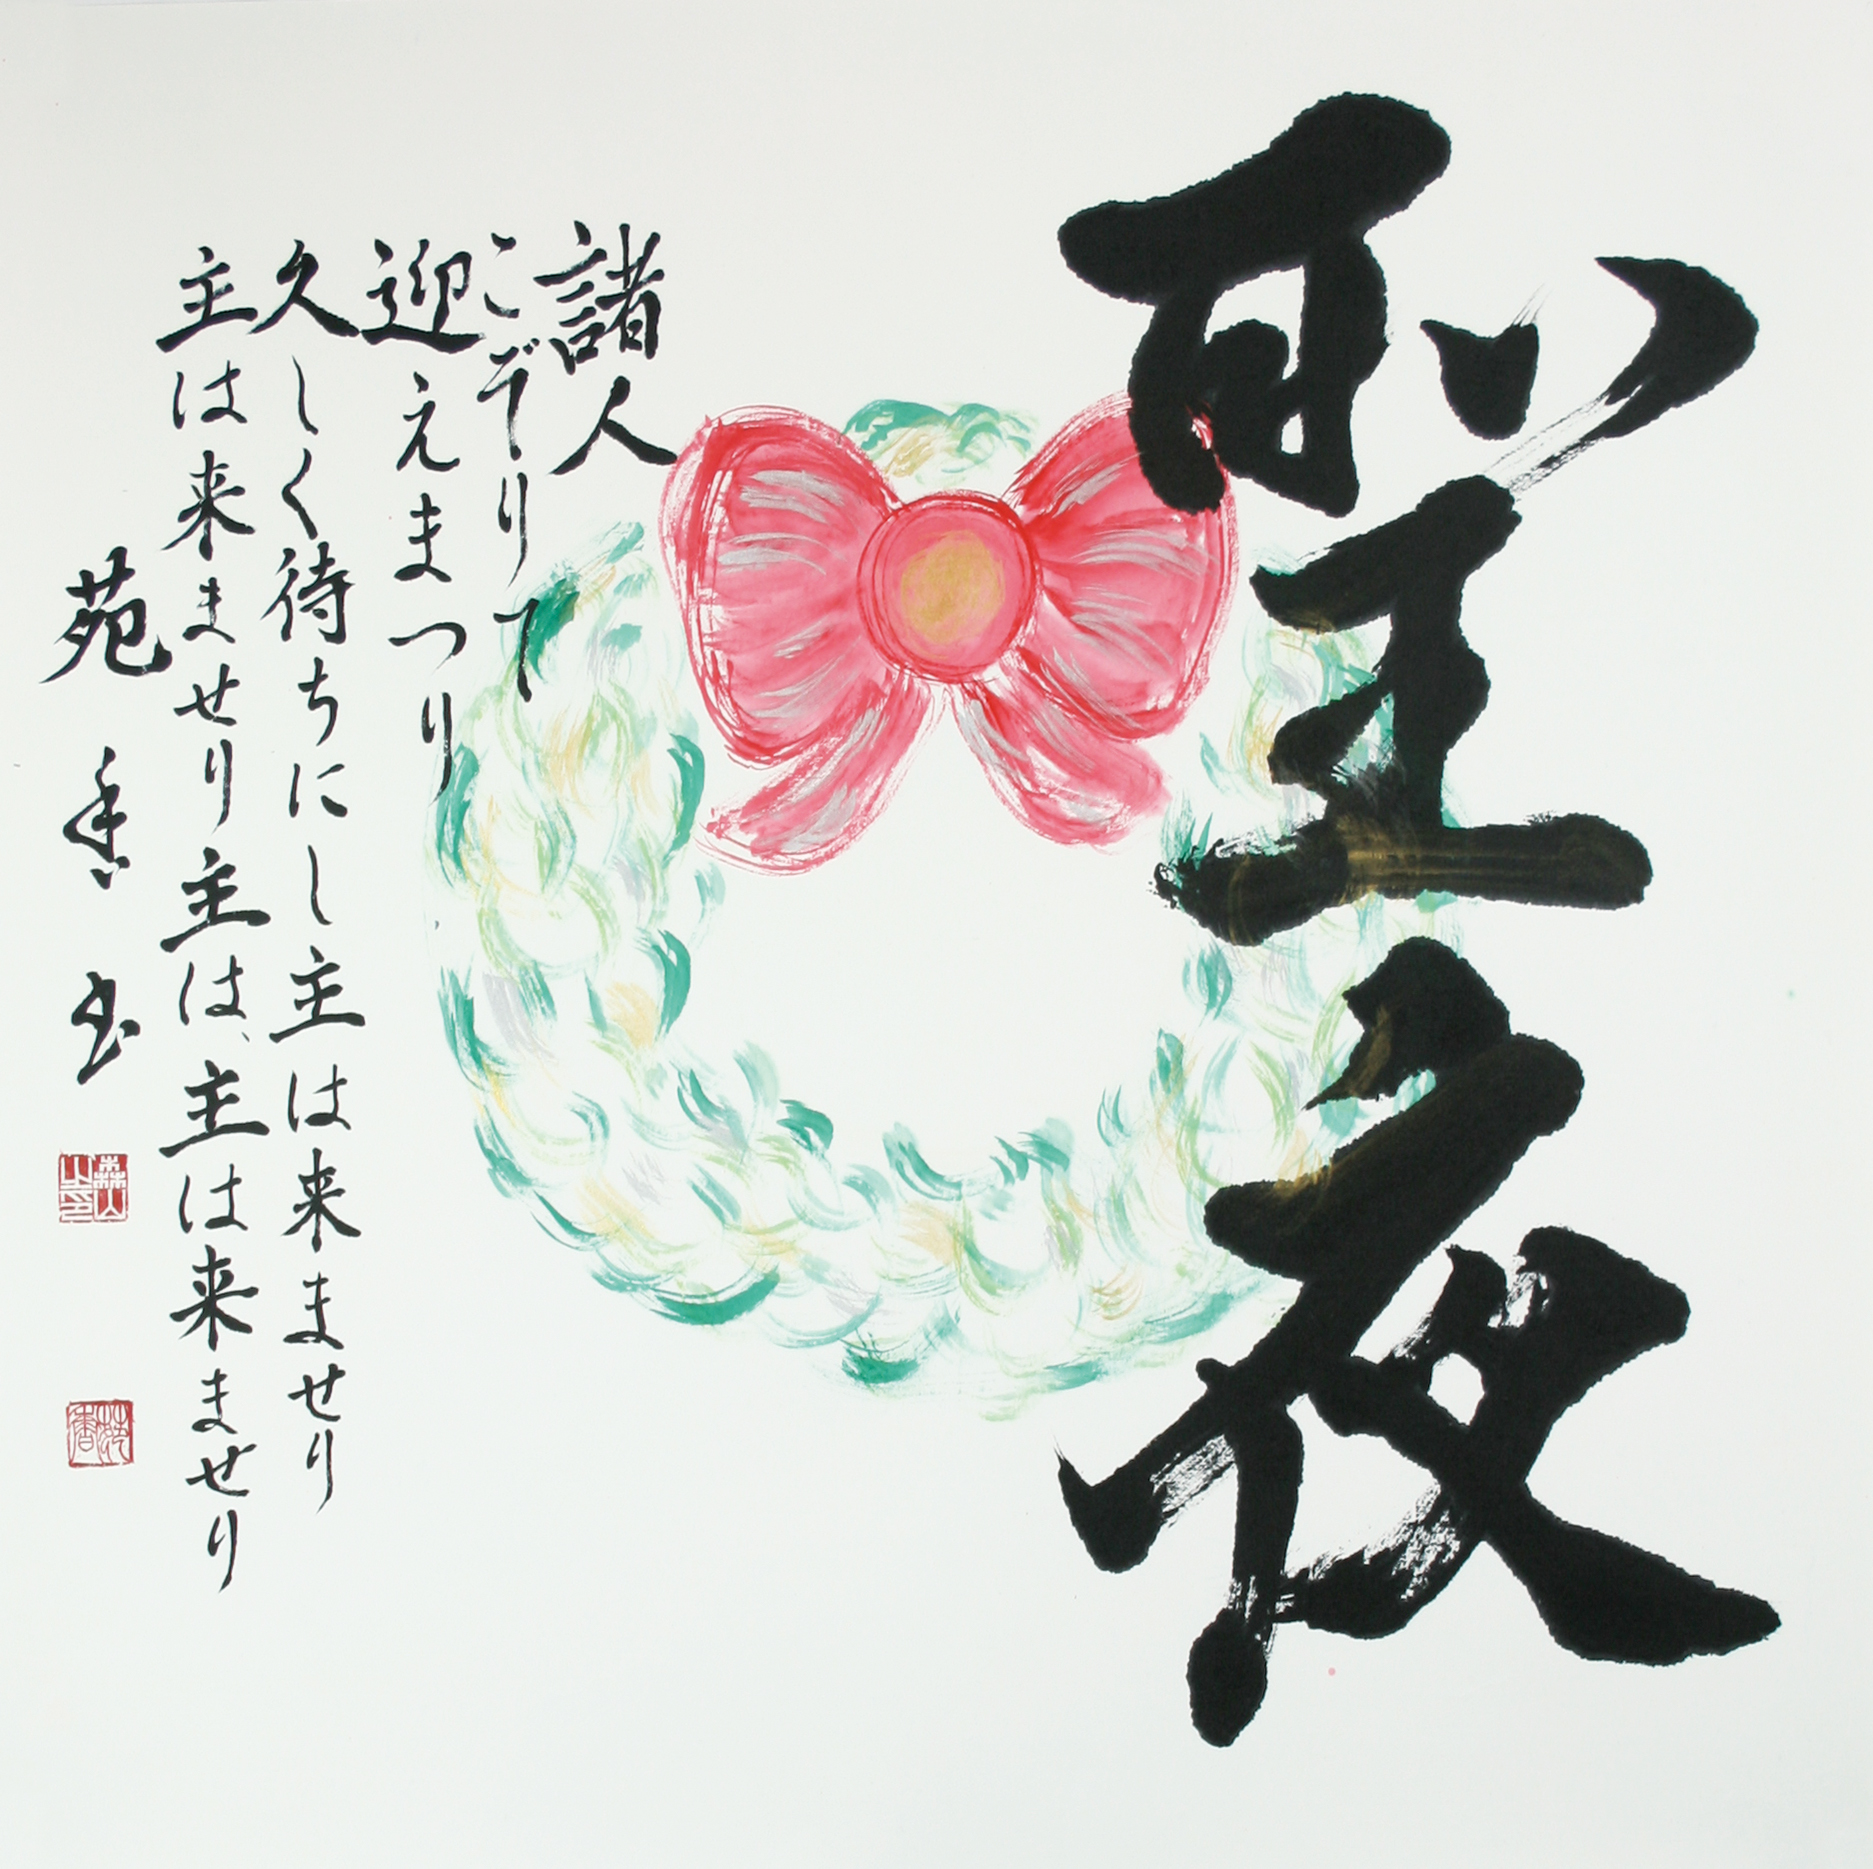 聖夜
諸人
こぞりて
迎えまつり
久しく待ちにし主は来ませり
主は来ませり主は、主は来ませり
苑香書